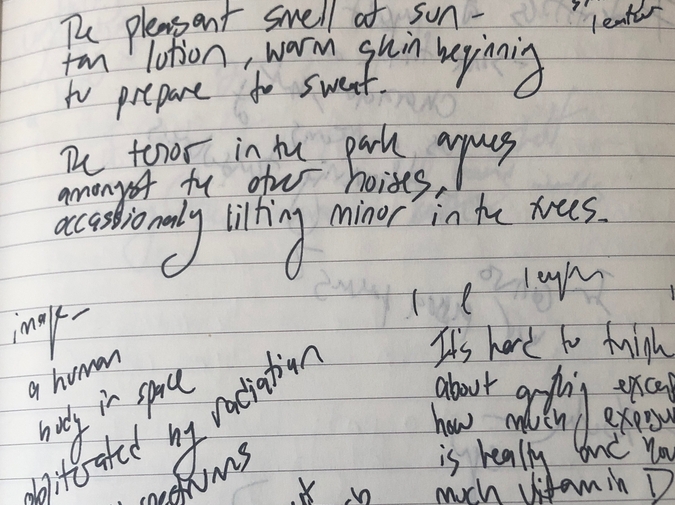 The pleasant smell of sun-
tan lotion, warm skin beginning
to prepare to sweat.
The tenor in the park argues
amongst the other noises,
occassionaly lilting minor in the trees.
a human
body in space
obliterated by radiation
It's hard to think
about anything
how much
is healthy and
much vitamin D